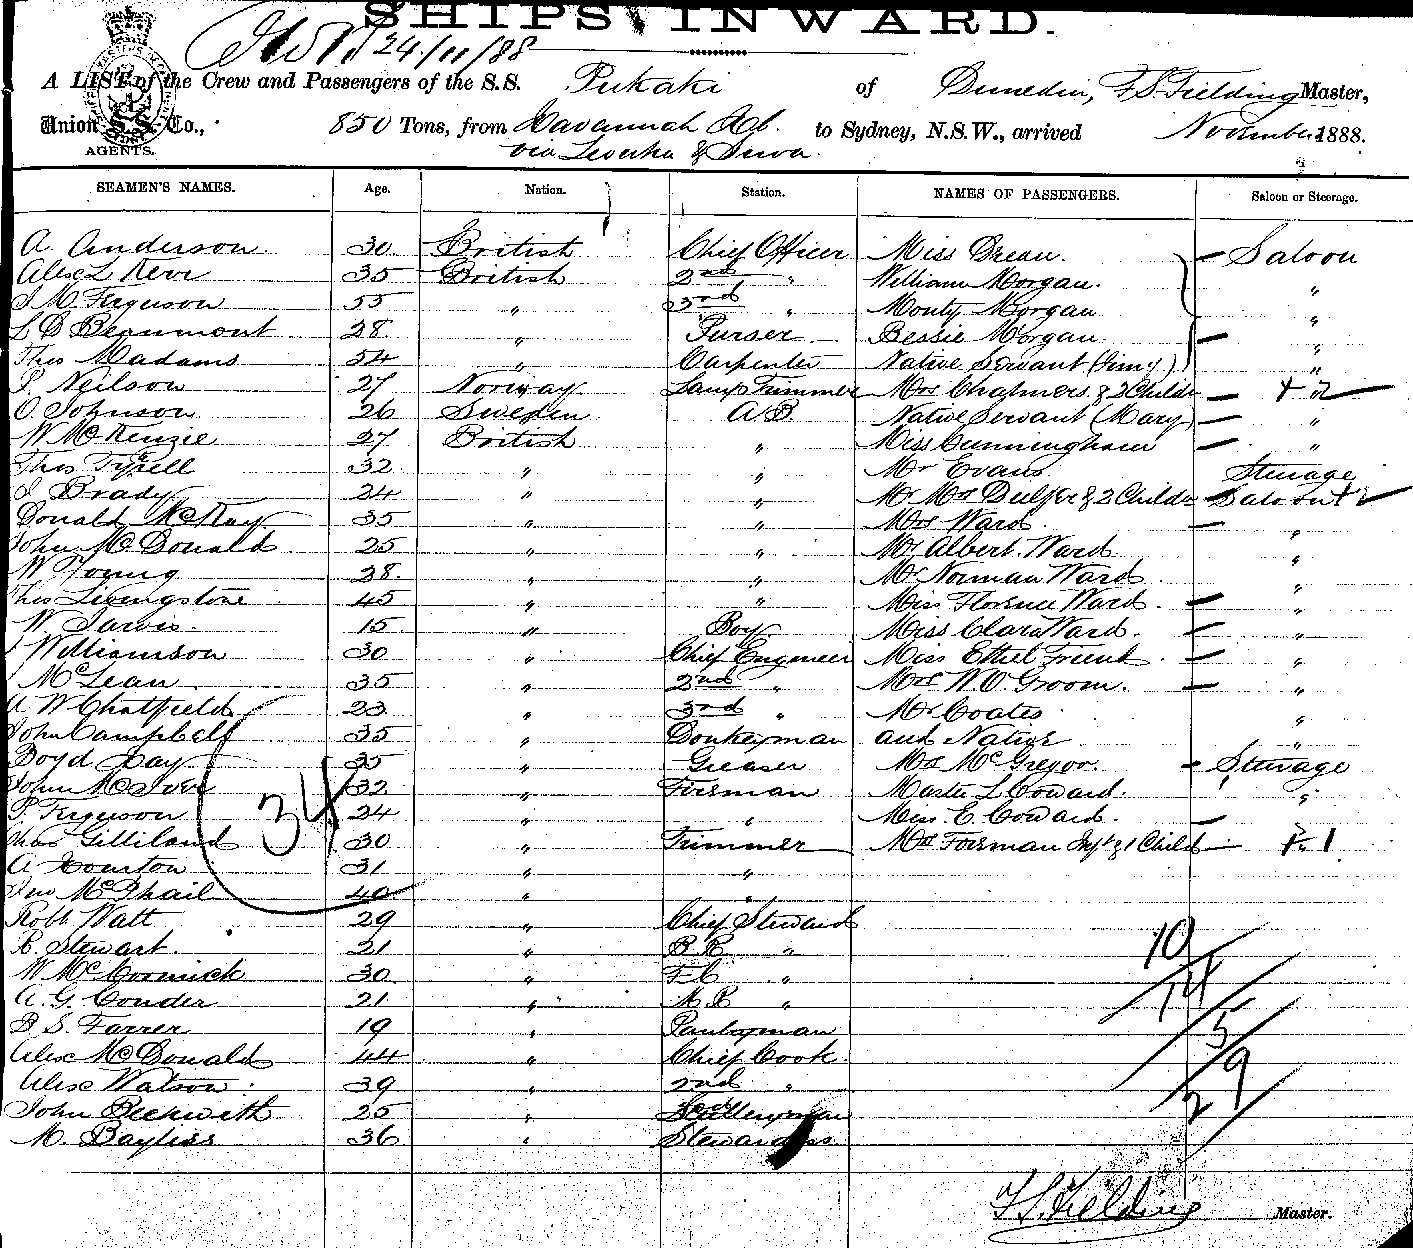 SHIPS INWARD.
24/11/88
A LIST of the Crew and Passengers of the S.S. Pukaki of Dunedin, F S Fielding Master,
Union S S Co., 850 Tons, from Savannah Hb. to Sydney, N.S.W., arrived November 1888.
AGENTS. via Levuka & Suva.
SEAMEN'S NAMES. Age. Nation. Station. NAMES OF PASSENGERS. Saloon or Steerage.
A. Anderson. 30 British Chief Officer Miss Saloon
Alex 35 British 2nd " William Morgan. "
Ferguson 55 " 3rd " Monty Morgan "
Beaumont 28 " Purser Bessie Morgan
Thos Madams 54 " Carpenter Native Servant "
Neilson 27 Norway Lamp Trimmer Mrs Chalmers & 2 Childn + 2
O Johnson 26 Sweden A B. Native Servant (Mary) "
W McKenzie 27 British " Miss Cunningham "
Thos Tyrell 32 " " Mr Evans Steerage
Brady 24 " " Mr Mrs & 2 Childn Saloon + 2
Donald McKay 35 " " Mrs Ward. "
John McDonald 25 " " Mr Albert Ward "
W Young 28. " " Mr Norman Ward "
Thos Livingstone 45 " " Miss Florence Ward. "
W Jarvis. 15 " Boy Miss Clara Ward. "
Williamson 30 " Chief Engineer Miss Ethel Friend "
McLean 35 " 2nd " Mrs W.O. Groom. "
A W Chatfield 23 " 3rd " Mr Coates "
John Campbell 35 " Donkeyman and Native "
Boyd Day 25 " Greaser Mrs McGregor. Steerage
John McIver 32 " Fireman Master L Coward. "
P. Ferguson 24 " " Miss E. Coward.
Gilliland 30 " Trimmer Mrs Foreman Inft & 1 Child + 1
A 31 " "
McPhail 40 " "
34
Robt Watt 29 " Chief Steward
R Stewart. 21 " B.R "
W McCormick 30 " F C "
A. G. Conder 21 " "
B S. Farrer 19 " Pantryman
Alex McDonald 44 " Chief Cook.
Alex Watson. 39 " 2nd "
John Beckwith 25 " Sculleryman
M. Bayliss 36 " Stewardess
10
14
5
29
F S. Fielding Master.